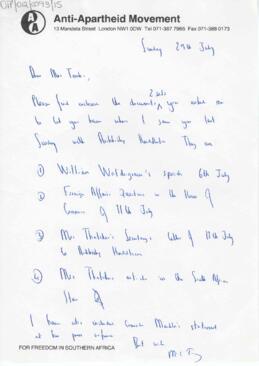 Anti-Apartheid Movement
13 Mandela Street London NW1 0DW Tel 071-387 7966 Fax 071-388 0173
Sunday 29th July
Dear Mrs
Please find enclosed the documents, 2 sets you asked me
to let you have when I saw you last
Sunday with Archbishop Huddleston They are
① William Waldegrave's speech 6th July
② Foreign Affairs Questions in the House of
Commons of 11th July
③ Mrs Thatcher's Secretary's letter of July
to Archbishop Huddleston
④ Mrs Thatcher's article in the South African
Star
I have also enclosed Mandela's statement
at his press conference
Best wishes
FOR FREEDOM IN SOUTHERN AFRICA